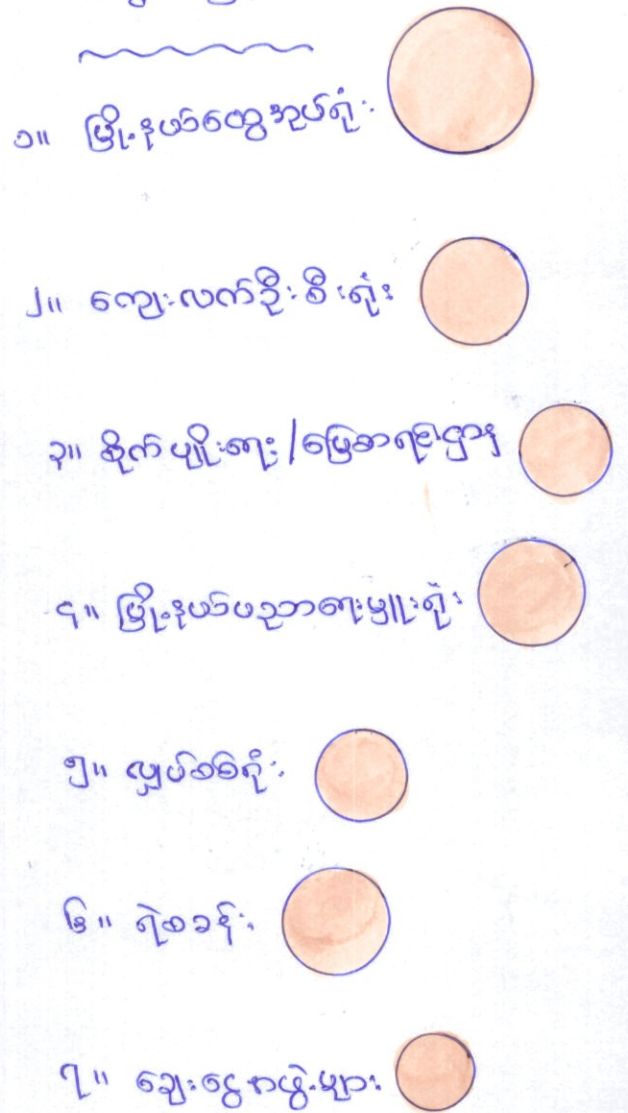 ၁။ မြို့နယ်ထွေအုပ်ရုံး
၂။ ကျေးလက်ဦးစီးရုံး
၃။ စိုက်ပျိုးရေး/မြေစာရင်းဌာန
၄။ မြို့နယ်ပညာရေးမှူးရုံး
၅။ လျှပ်စစ်ရုံး
၆။ ရဲစခန်း
၇။ ချေးငွေအဖွဲ့များ